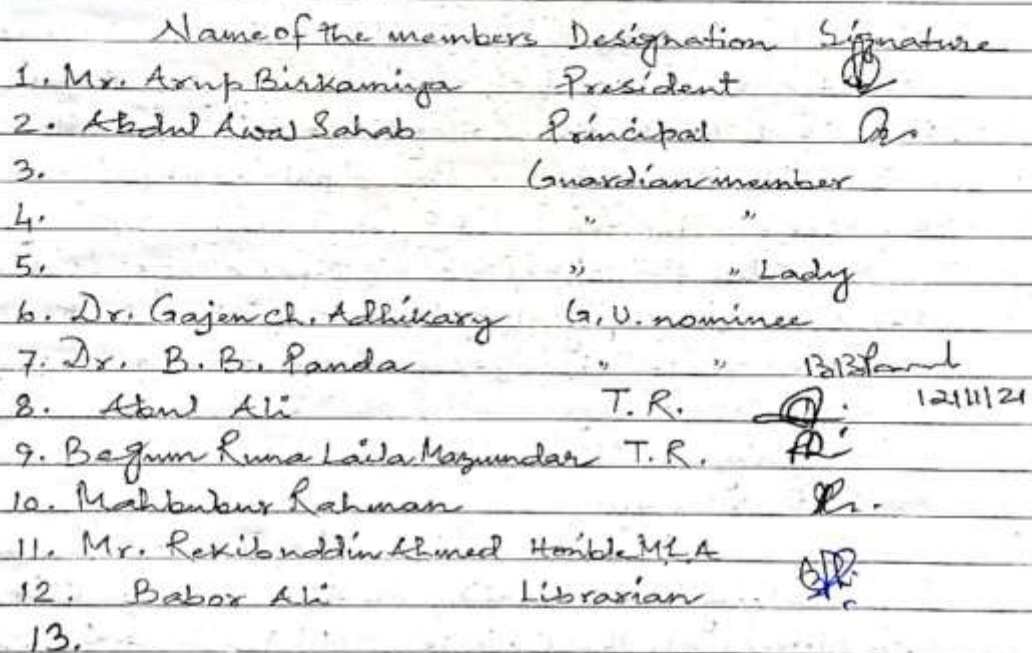 Name of the members Designation Signature
1. Mr. Arup Birkamiya President
2. Abdul Awal Sahab Principal
3. Guardian member
4. " "
5. " " Lady
6. Dr. Gajen ch. Adhikary G.U. nominee
7. Dr. B. B. Panda " "
8. Abul Ali T. R. 12/11/21
9. Begum Runa Laila Mazumdar T. R.
10. Mahbubur Rahman
11. Mr. Rekibuddin Ahmed Hon'ble MLA
12. Babor Ali Librarian
13.